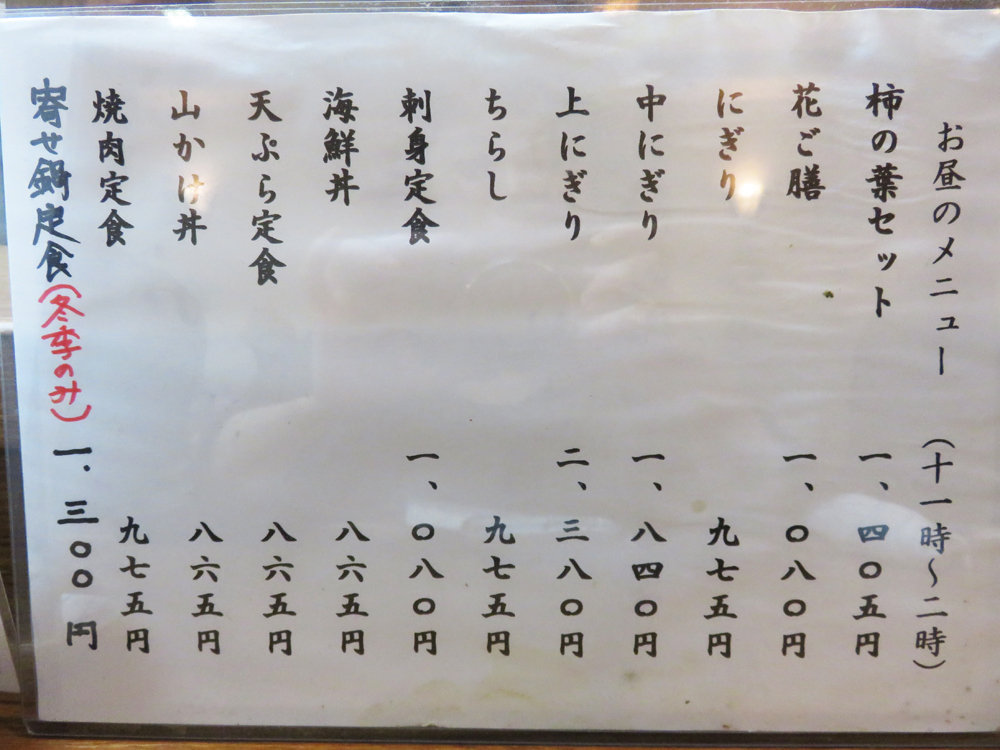 お昼のメニュー （十一時～二時）
柿の葉セット 一、四〇五円
花ご膳 一、〇八〇円
にぎり 九七五円
中にぎり 一、八四〇円
上にぎり 二、三八〇円
ちらし 九七五円
刺身定食 一、〇八〇円
海鮮丼 八六五円
天ぷら定食 八六五円
山かけ丼 八六五円
焼肉定食 九七五円
寄せ鍋定食（冬季のみ） 一、三〇〇円